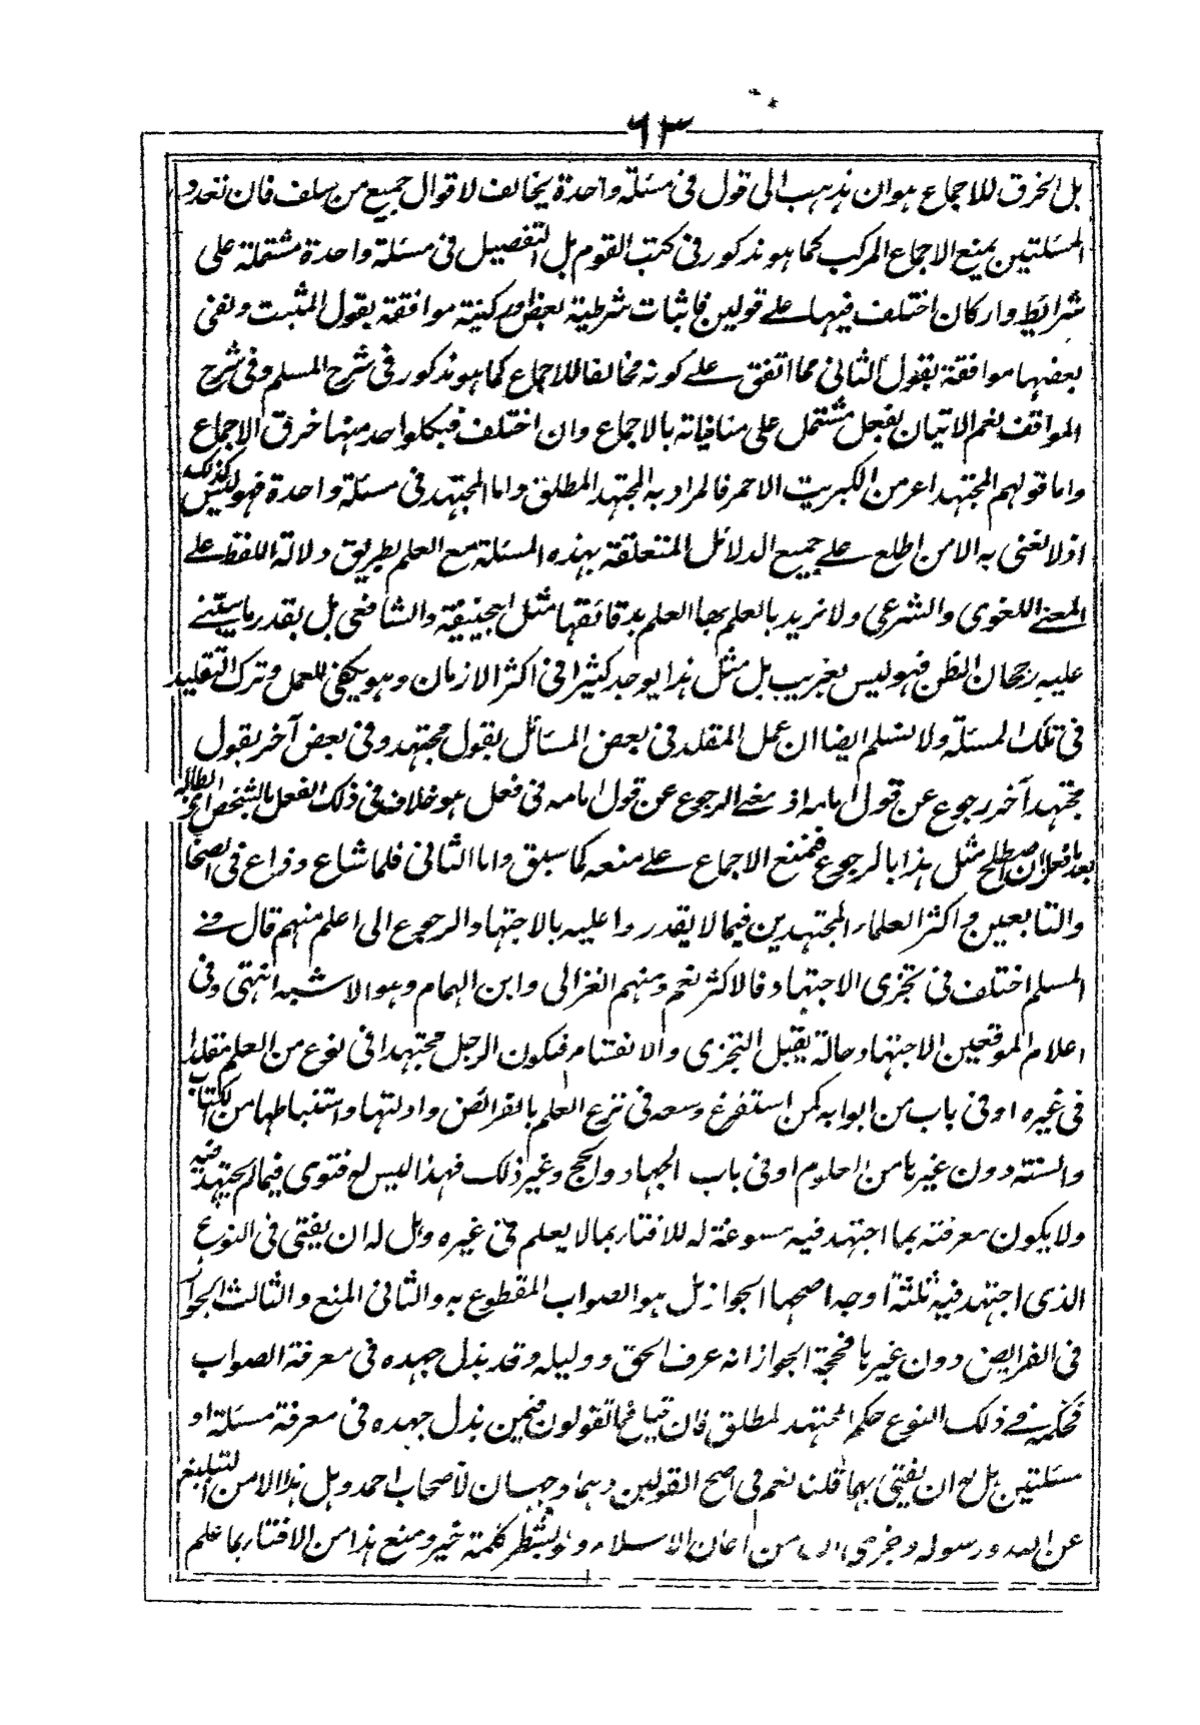 ٦٣
بل الخرق للاجماع هو ان نذهب الى قول فى مسئلة واحدة يخالف لاقوال جميع من سلف فان تعدد
المسئلتين يمنع الاجماع المركب كما هو مذكور فى كتب القوم بل التفصيل فى مسئلة واحدة مشتملة على
شرائط واركان اختلف فيها على قولين فاثبات شرطية بعض او ركنية موافقة بقول المثبت ونفى
بعضها موافقة بقول الثانى مما اتفق على كونه مخالفا للاجماع كما هو مذكور فى شرح المسلم وفى شرح
المواقف نعم الاتيان بفعل مشتمل على منافياته بالاجماع وان اختلف فبكل واحد منها خرق الاجماع
واما قولهم المجتهد اعز من الكبريت الاحمر فالمراد به المجتهد المطلق واما المجتهد فى مسئلة واحدة فهو ليس كذلك
اذ لا نعنى به الا من اطلع على جميع الدلائل المتعلقة بهذه المسئلة مع العلم بطريق دلالة اللفظ على
المعنى اللغوى والشرعى ولا نريد بالعلم بها العلم بدقائقها مثل ابيحنيفة والشافعى بل بقدر ما يبتنے
عليه رجحان الظن فهو ليس بغريب بل مثل هذا يوجد كثيرا فى اكثر الازمان وهو يكفى للعمل وترك التقليد
فى تلك المسئلة ولا نسلم ايضا ان عمل المقلد فى بعض المسائل بقول مجتهد وفى بعض آخر بقول
مجتهد آخر رجوع عن قول امامه اذ معنے الرجوع عن قول امامه فى فعل هو خلافه فى ذلك الفعل بالشخص
بعد ما فعل ان اصطلح مثل هذا بالرجوع فمنع الاجماع على منعه كما سبق واما الثانى فلما شاع وذاع فى الصحابة
والتابعين واكثر العلماء المجتهدين فيما لا يقدروا عليه بالاجتهاد الرجوع الى اعلم منهم قال فے
المسلم اختلف فى تجزى الاجتهاد فالاكثر نعم ومنهم الغزالى وابن الهمام وهو الاشبه انتهى وفى
اعلام الموقعين الاجتهاد حالة يقبل التجزى والانقسام فيكون الرجل مجتهدا فى نوع من العلم مقلدا
فى غيره او فى باب من ابوابه كمن استفرغ وسعه فى نوع العلم بالفرائض وادلتها واستنباطها من الكتاب
والسنة دون غيرها من العلوم او فى باب الجهاد والحج وغير ذلك فهذا ليس له فتوى فيما لم يجتهد فيه
ولا يكون معرفته بما اجتهد فيه مسوغة له للافتاء بما لا يعلم فى غيره وهل له ان يفتى فى النوع
الذى اجتهد فيه ثلثة اوجه اصحها الجواز بل هو الصواب المقطوع به والثانى المنع والثالث الجواز
فى الفرايض دون غيرها فحجة الجواز انه عرف الحق ودليله وقد بذل جهده فى معرفة الصواب
فحكمه فے ذلك النوع حكم المجتهد المطلق فان قيل فما تقولون فيمن بذل جهده فى معرفة مسئلة او
مسئلتين هل له ان يفتى بهما قلنا نعم فى اصح القولين وهما وجهان لاصحاب احمد وهل هذا الا من التبليغ
عن الله ورسوله وجزى الله من اعان الاسلام ولو بشطر كلمة خيرا ومنع هذا من الافتاء بما علم